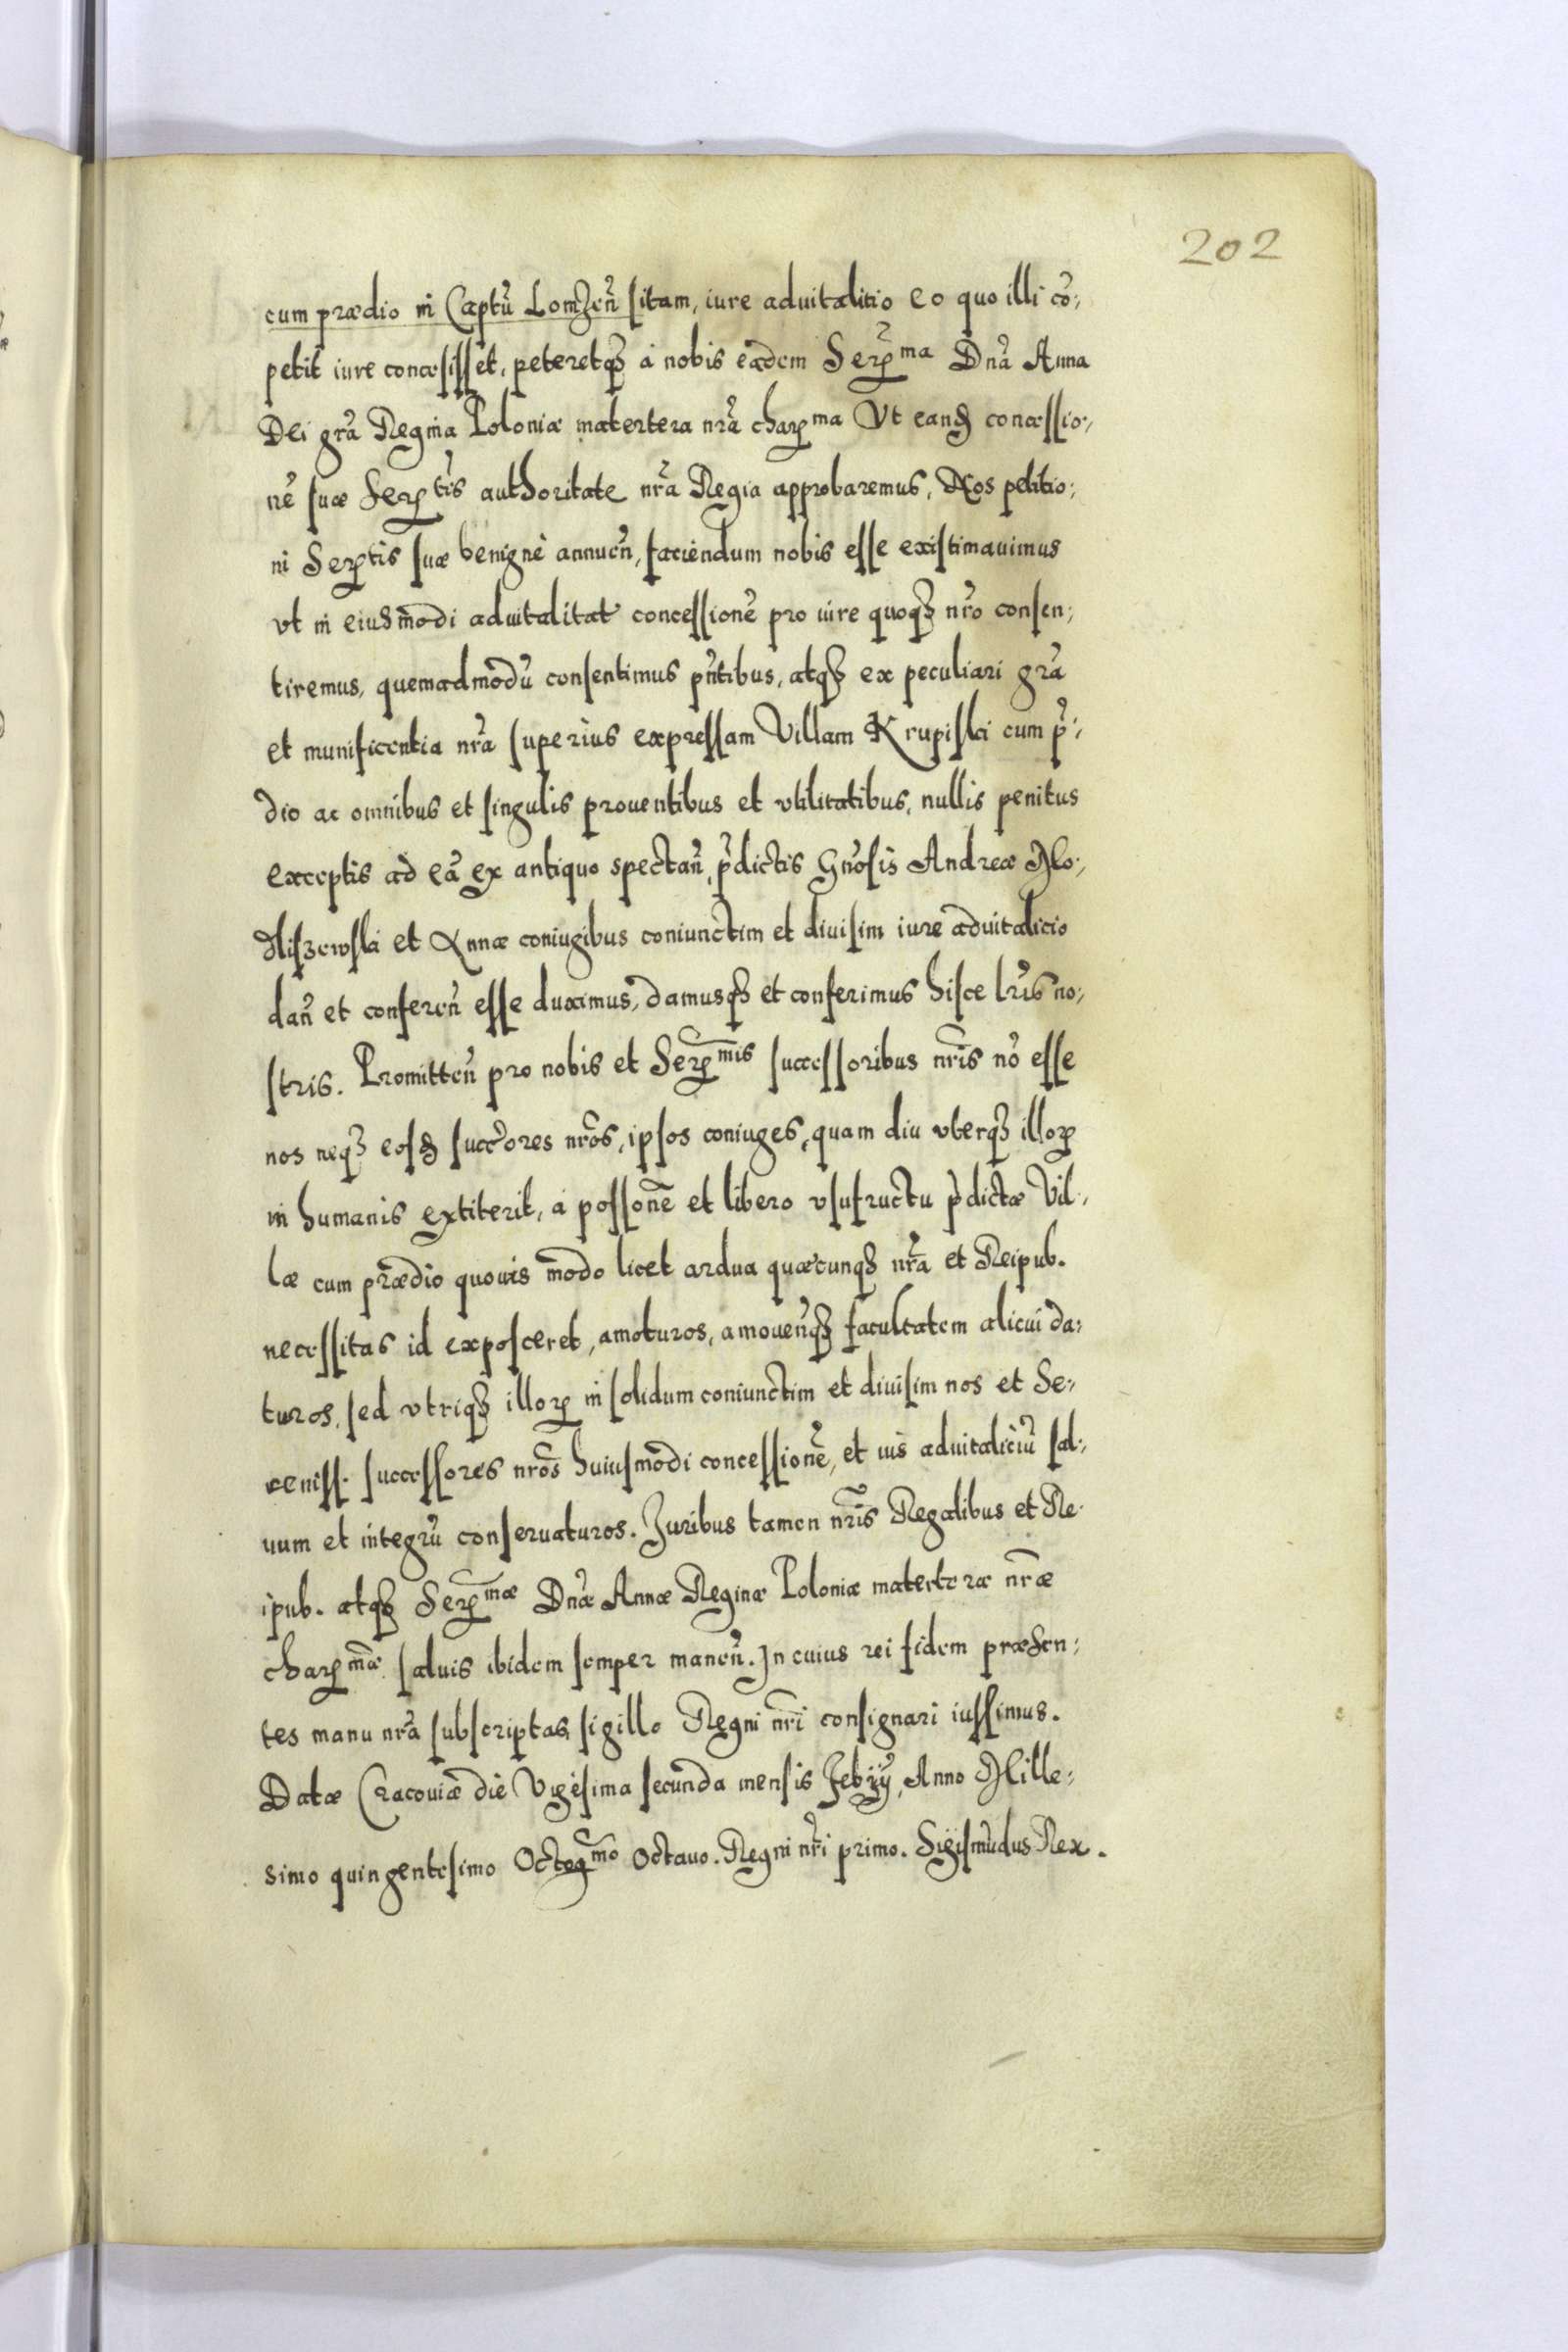 202
cum prædio in Captũ Lomzeñ sitam, iure aduitalitio eo quo illi cõ;
petit iure concæsisset, peteretq̃ à nobis eadem Ser̃ma Dnã Anna
Dei grã Regina Poloniæ matertera nrã charma Vt eand concessio;
nẽ suæ Sertis authoritate nrã Regia approbaremus, Nos petitio;
ni Sertis suæ benignè annueñ, faciendum nobis esse existimauimus
vt in eiusmodi aduitalitat concessionẽ pro iure quoq̃ nrõ consen;
tiremus, quemadmodũ consentimus pñtibus, atq̃ ex peculiari grã
et munificentia nrã superius expressam Villam Krupiski cum p̃;
dio ac omnibus et singulis prouentibus et vtilitatibus, nullis penitus
exceptis ad eã ex antiquo spectañ, p̃dictis Gnõsis Andreæ Mo;
dliszewski et Annæ coniugibus coniunctim et diuisim iure aduitalicio
dañ et confereñ esse duximus, damusq̃ et conferimus hisce lrĩs no;
stris. Promitteñ pro nobis et Sermis successoribus nrĩs nõ esse
nos neq̃ eosd succ̃ores nrõs, ipsos coniuges, quam diu vterq̃ illor
in humanis extiterit, à possonẽ et libero vsufructu p̃dictæ Vil;
læ cum prædio quouis modo licet ardua quæcunq̃ nrã et Reipub.
necessitas id exposceret, amoturos, amoueñq̃ facultatem alicui da;
turos, sed vtriq̃ illor in solidum coniunctim et diuisim nos et Se;
reniss. successores nrõs huiusmodi concessionẽ, et ius aduitaliciũ sal;
uum et integrũ conseruaturos. Juribus tamen nrĩs Regalibus et Re;
ipub. atq̃ Sermæ Dnæ Annæ Reginæ Poloniæ materteræ nræ
charmæ saluis ibidem semper maneñ. In cuius rei fidem præsen;
tes manu nrã subscriptas sigillo Regni nrĩ consignari iussimus.
Datæ Cracouiæ die Vigesima secunda mensis Febrij, Anno Mille;
simo quingentesimo Octogmo Octauo. Regni nrĩ primo. Sigismũdus Rex.